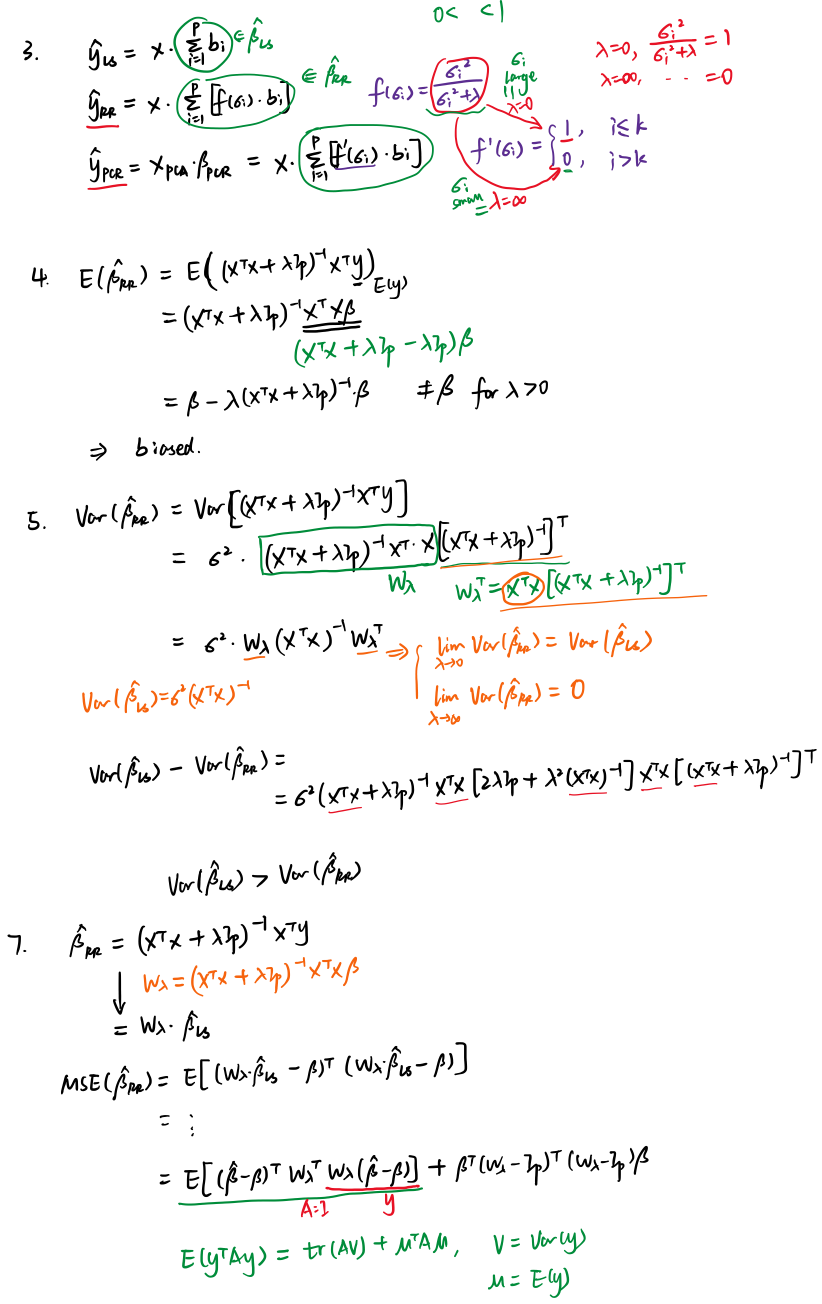 0< <1
3. ŷ_LS = X · Σ_{i=1}^{p} b_i ∈ β̂_LS
λ=0, σ_i²/(σ_i²+λ) = 1
λ=∞, ·· =0
ŷ_RR = X · Σ_{i=1}^{p} [f(σ_i) · b_i] ∈ β̂_RR
f(σ_i) = σ_i²/(σ_i²+λ)
σ_i large
λ=0
ŷ_PCR = X_PCA · β_PCR = X · Σ_{i=1}^{p} [f'(σ_i) · b_i]
f'(σ_i) = { 1, i≤k
0, i>k
σ_i small λ=∞
4. E(β̂_RR) = E((XᵀX + λI_p)⁻¹Xᵀy) E(y)
= (XᵀX + λI_p)⁻¹XᵀXβ
(XᵀX + λI_p − λI_p)β
= β − λ(XᵀX + λI_p)⁻¹·β ≠ β for λ>0
⇒ biased.
5. Var(β̂_RR) = Var[(XᵀX + λI_p)⁻¹Xᵀy]
= σ² · (XᵀX + λI_p)⁻¹Xᵀ·X[(XᵀX + λI_p)⁻¹]ᵀ
W_λ W_λᵀ = XᵀX[(XᵀX + λI_p)⁻¹]ᵀ
= σ² · W_λ(XᵀX)⁻¹W_λᵀ ⇒ { lim_{λ→0} Var(β̂_RR) = Var(β̂_LS)
Var(β̂_LS) = σ²(XᵀX)⁻¹ lim_{λ→∞} Var(β̂_RR) = 0
Var(β̂_LS) − Var(β̂_RR) =
= σ²(XᵀX + λI_p)⁻¹XᵀX[2λI_p + λ²(XᵀX)⁻¹]XᵀX[(XᵀX + λI_p)⁻¹]ᵀ
Var(β̂_LS) > Var(β̂_RR)
7. β̂_RR = (XᵀX + λI_p)⁻¹Xᵀy
↓ W_λ = (XᵀX + λI_p)⁻¹XᵀXβ
= W_λ · β̂_LS
MSE(β̂_RR) = E[(W_λ·β̂_LS − β)ᵀ (W_λ·β̂_LS − β)]
= ⋮
= E[(β̂−β)ᵀ W_λᵀ W_λ(β̂−β)] + βᵀ(W_λ − I_p)ᵀ(W_λ − I_p)β
A=I y
E(yᵀAy) = tr(AV) + μᵀAμ, V = Var(y)
μ = E(y)